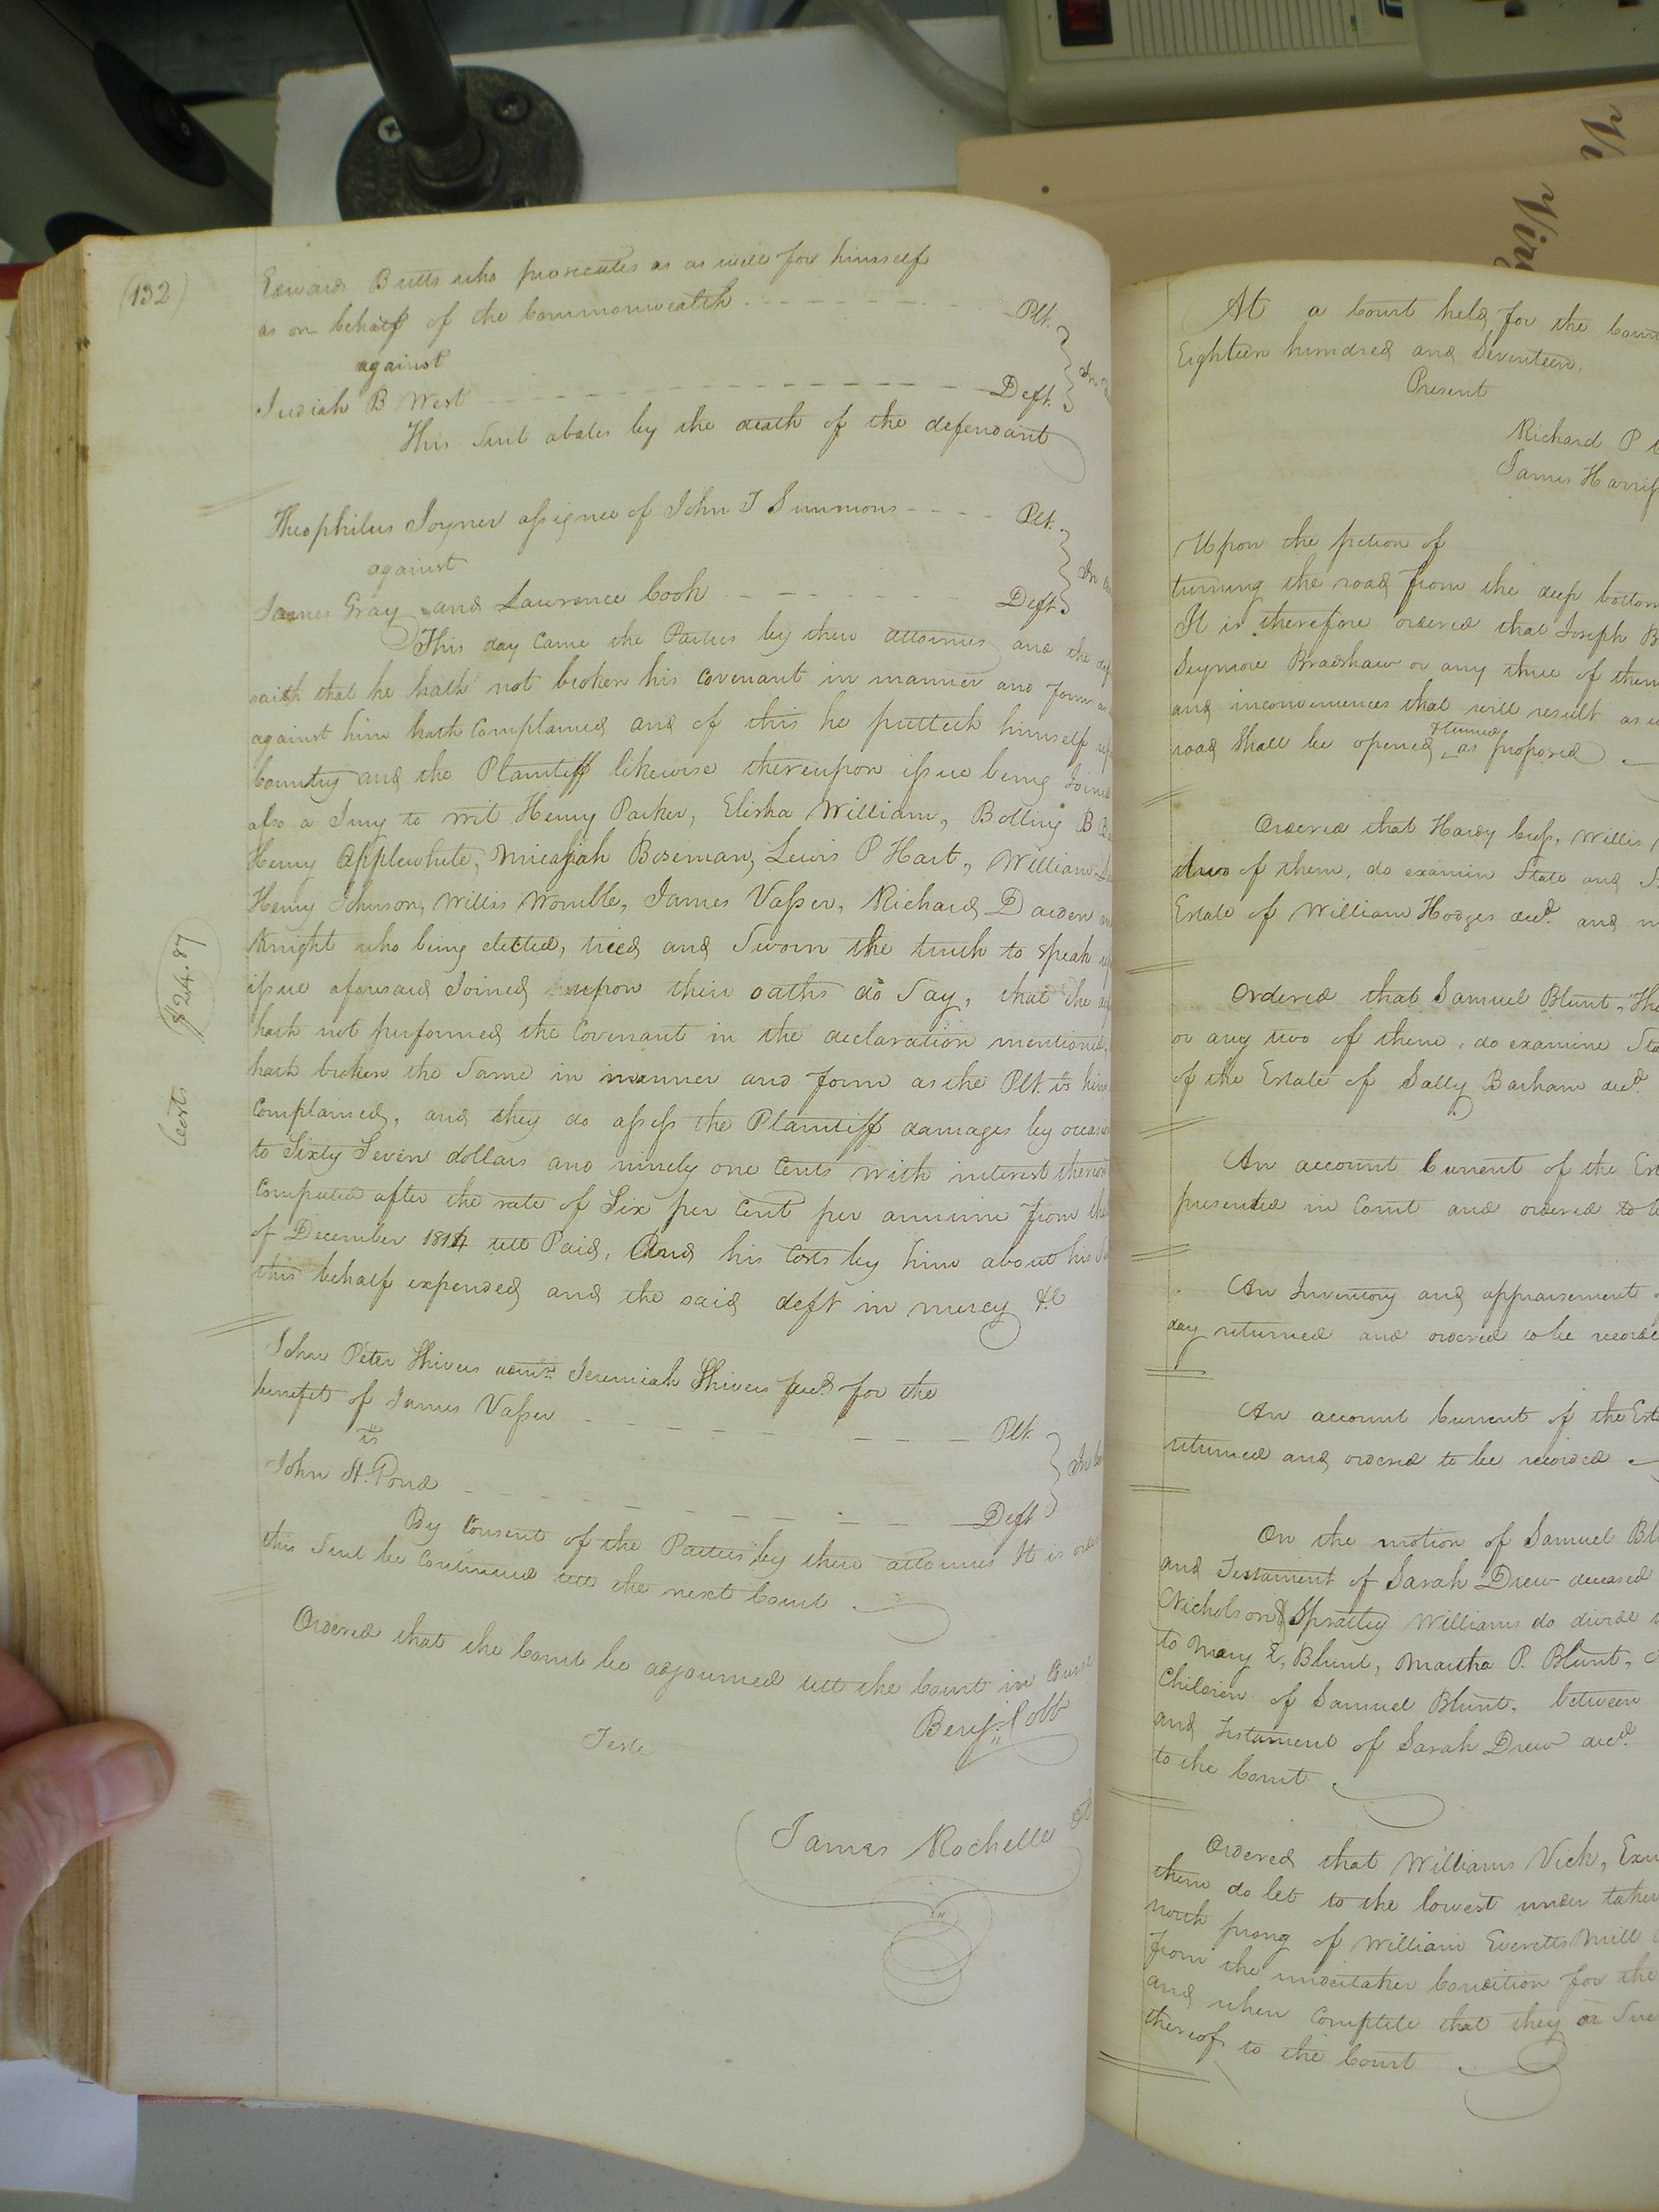 (132)
Edward Butts who prosecutes as as well for himself
as on behalf of the Commonwealth Plt.
against
Judiah B West Deft.
This Suit abates by the death of the defendant
Theophilus Joyner assignee of John T Simmons Plt.
against
James Gray and Lawrence Cook Deft
This day Came the Parties by their attornies and the
saith that he hath not broken his Covenant in manner and form
against him hath Complained and of this he putteth himself
Country and the Plaintiff likewise thereupon issue being Joined
also a Jury to wit Henry Parker, Elisha William, Bolling B
Henry Applewhite, Micajah Boseman, Lewis P Hart, William
Henry Johnson, Willis Womble, James Vasser, Richard Darden
Knight who being elected, tried and Sworn the truth to speak
issue aforesaid Joined upon their oaths do Say, that the
hath not performed the Covenant in the declaration mentioned,
hath broken the Same in manner and form as the Plt. vs him
Complained, and they do assess the Plaintiff damages by occasion
to Sixty Seven dollars and ninety one Cents with interest thereon
Computed after the rate of Six per Cent per annum from the
of December 1814 till Paid, And his Costs by him about his
this behalf expended, and the said deft in mercy &c
Costs $24.87
John Peter Shivers admr. Jeremiah Shivers decd. for the
benefit of James Vasser Plt.
vs
John H. Pond Deft
By Consent of the Parties by their attornies It is
this Suit be Continued till the next Court
Ordered that the Court be adjourned till the Court in Course
Benj. Cobb
Teste
James Rochelle
At a Court held for the
Eighteen hundred and Seventeen.
Present
Richard P
James
Upon the petion of
turning the road from the deep bottom
It is therefore ordered that Joseph
Seymore Bradshaw or any three of them
and inconveniences that will result as
road Shall be opened, & turned as proposed
Ordered that Hardy Cuss, Willis
two of them, do examin State and
Estate of William Hodges decd. and
Ordered that Samuel Blunt,
or any two of them, do examine
of the Estate of Sally Barham decd.
An account Current of the
presented in Court and ordered to
An Inventory and appraisement
day returned and ordered to be
An account Current of the
returned and ordered to be recorded
On the motion of Samuel
and Testament of Sarah Drew deceased
Nicholson & Spratley Williams do divide
to Mary E, Blunt, Martha P. Blunt,
Children of Samuel Blunt, between
and Testament of Sarah Drew decd.
to the Court
Ordered that Williams Vick,
them do let to the lowest under taker
north prong of William Everetts Mill
from the undertaker Condition for the
and when Complete that they or
thereof to the Court